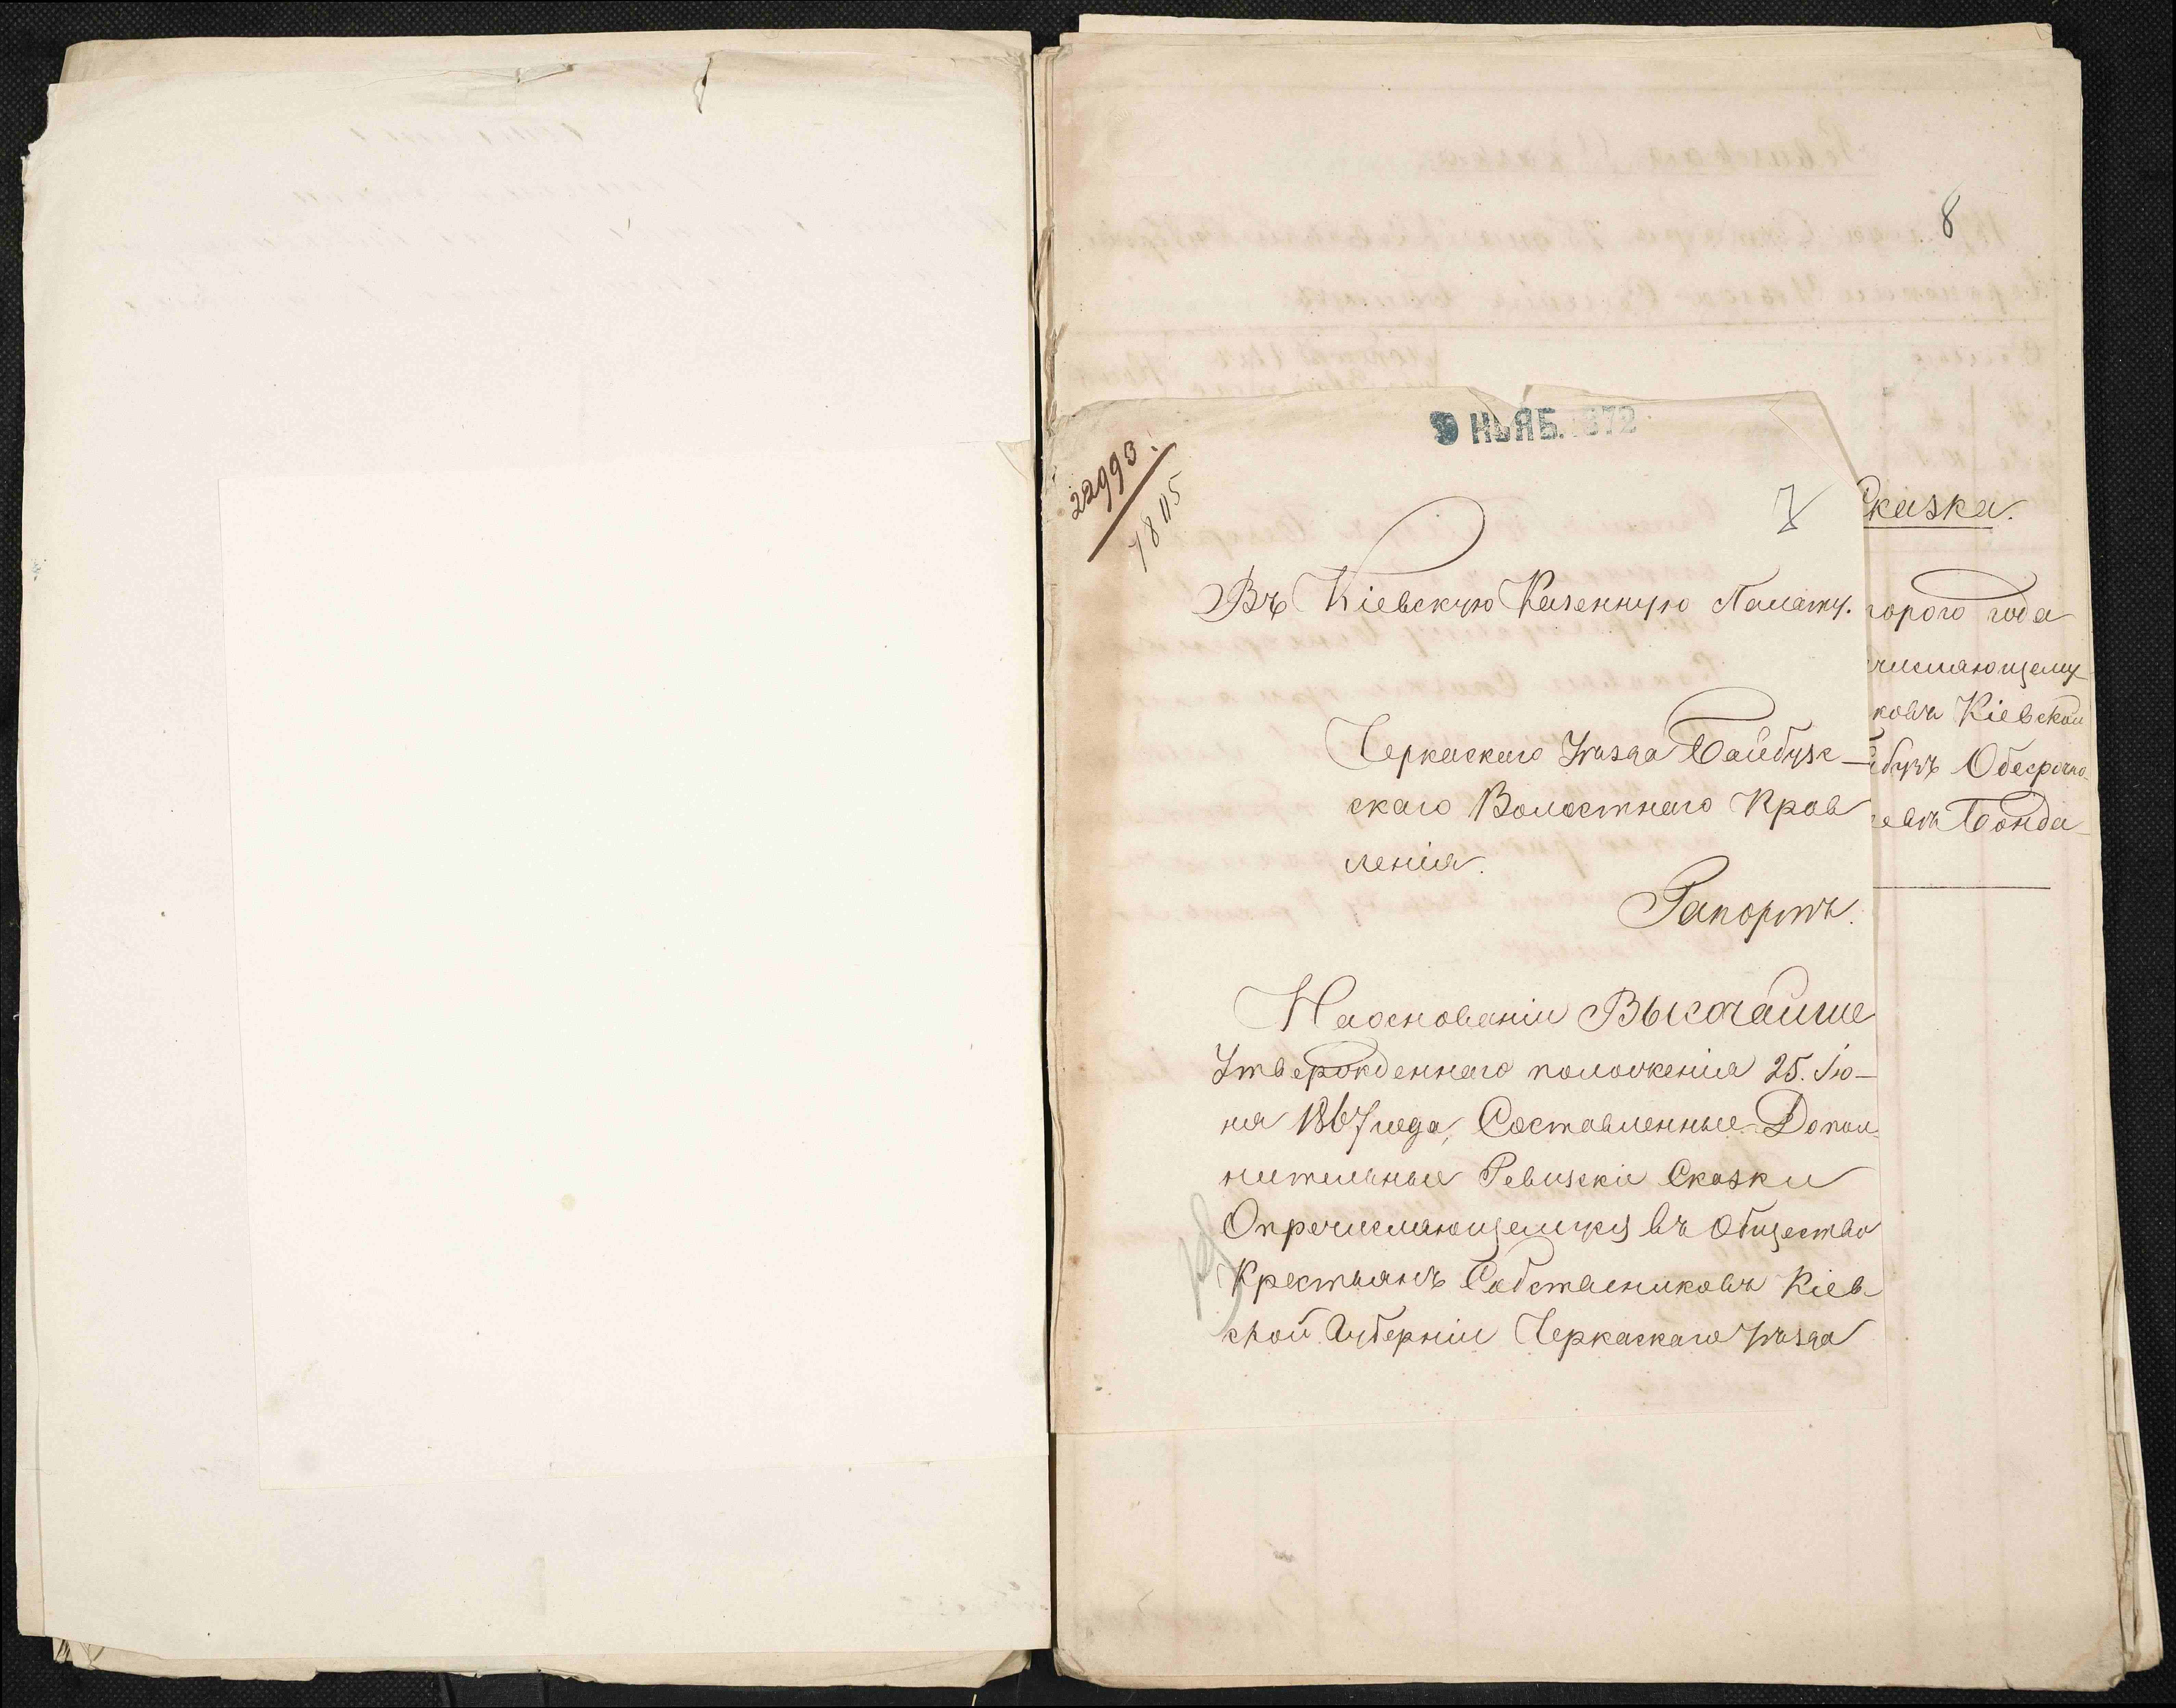 8
9 НОЯБ. 1872
22993.
1805
7
Въ Кіевскую Казенную Палату.
Черкаскаго Уѣзда Байбузс-
скаго Волостнаго Прав
ленія.
Рапортъ.
Наоснованіи Высочайше
Утвержденнаго положенія 25. Ію-
ня 1867 года, Составленные Допол-
нительные Ревизскіи Сказки
Опречисляющемуся въ Общество
Крестьянъ Собствениковъ Кіев
ской Губерніи Черкаскаго Уѣзда
Сказка.
торого года
числяющему
ковъ Кіевской
Обесрочно-
евъ Бонда-